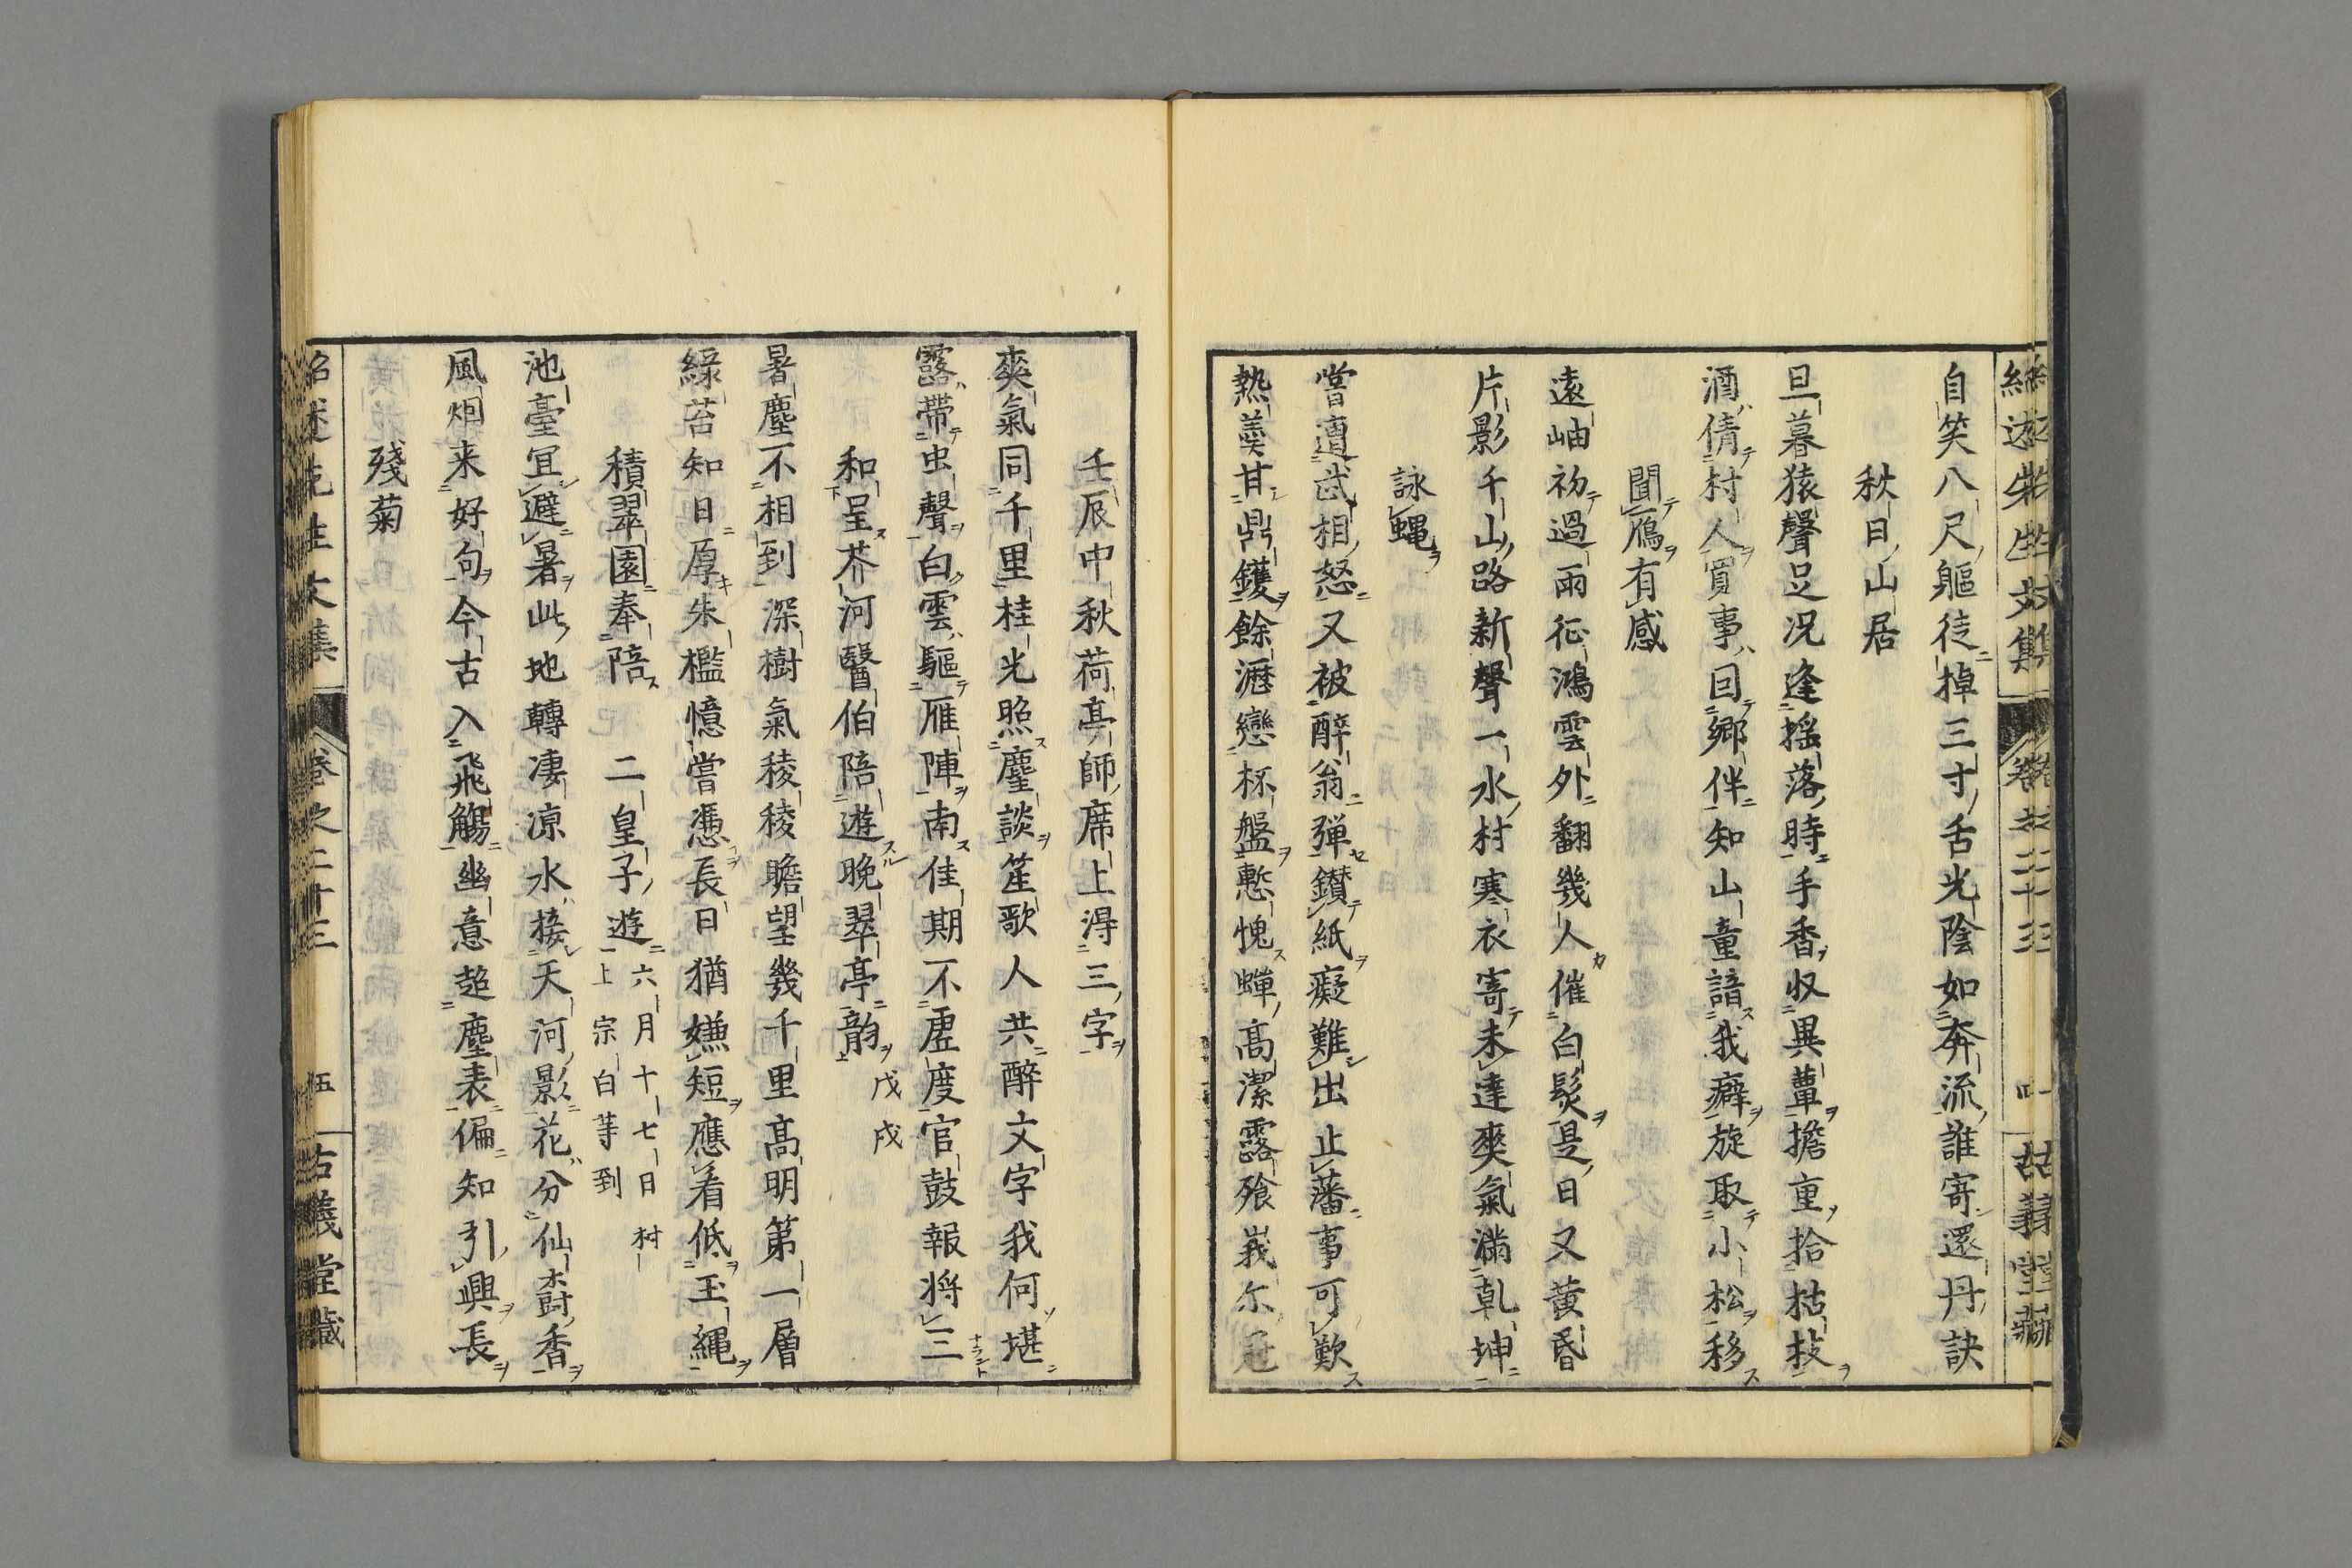 自笑八尺軀徒掉三寸舌光陰如奔流誰寄還丹訣
秋日山居
旦暮猿聲足况逢揺落時手香収異蕈擔重拾枯枝
酒倩村人買事囙鄉伴知山童諳我癖旋取小松移
聞鴈有感
遠岫初過雨征鴻雲外翻幾人催白髮是日又黃昏
片影千山路新聲一水村寒衣寄未達爽氣滿乹坤
詠蝿
嘗遭武相怒又被醉翁彈鑚紙癡難出止藩事可歎
熱羹甘鼎鑊餘瀝戀杯盤慙愧蟬高潔露飱峩尓冠
壬辰中秋荷亭師席上得三字
爽氣同千里桂光照麈談笙歌人共醉文字我何堪
露帶虫聲白雲驅雁陣南佳期不虛度官鼓報将三
和呈芥河醫伯陪遊晚翠亭韵 戊戌
暑塵不相到深樹氣稜稜瞻望幾千里髙明第一層
緑苔知日厚朱檻憶嘗憑長日猶嫌短應着低玉縄
積翠園奉陪 二皇子遊 六月十七日 村上宗白等到
池臺冝避暑此地轉凄凉水接天河影花分仙𣗳香
風烟来好句今古入飛觴幽意超塵表偏知引興長
殘菊
紹述先生文集 卷之二十三 伍 古義堂藏